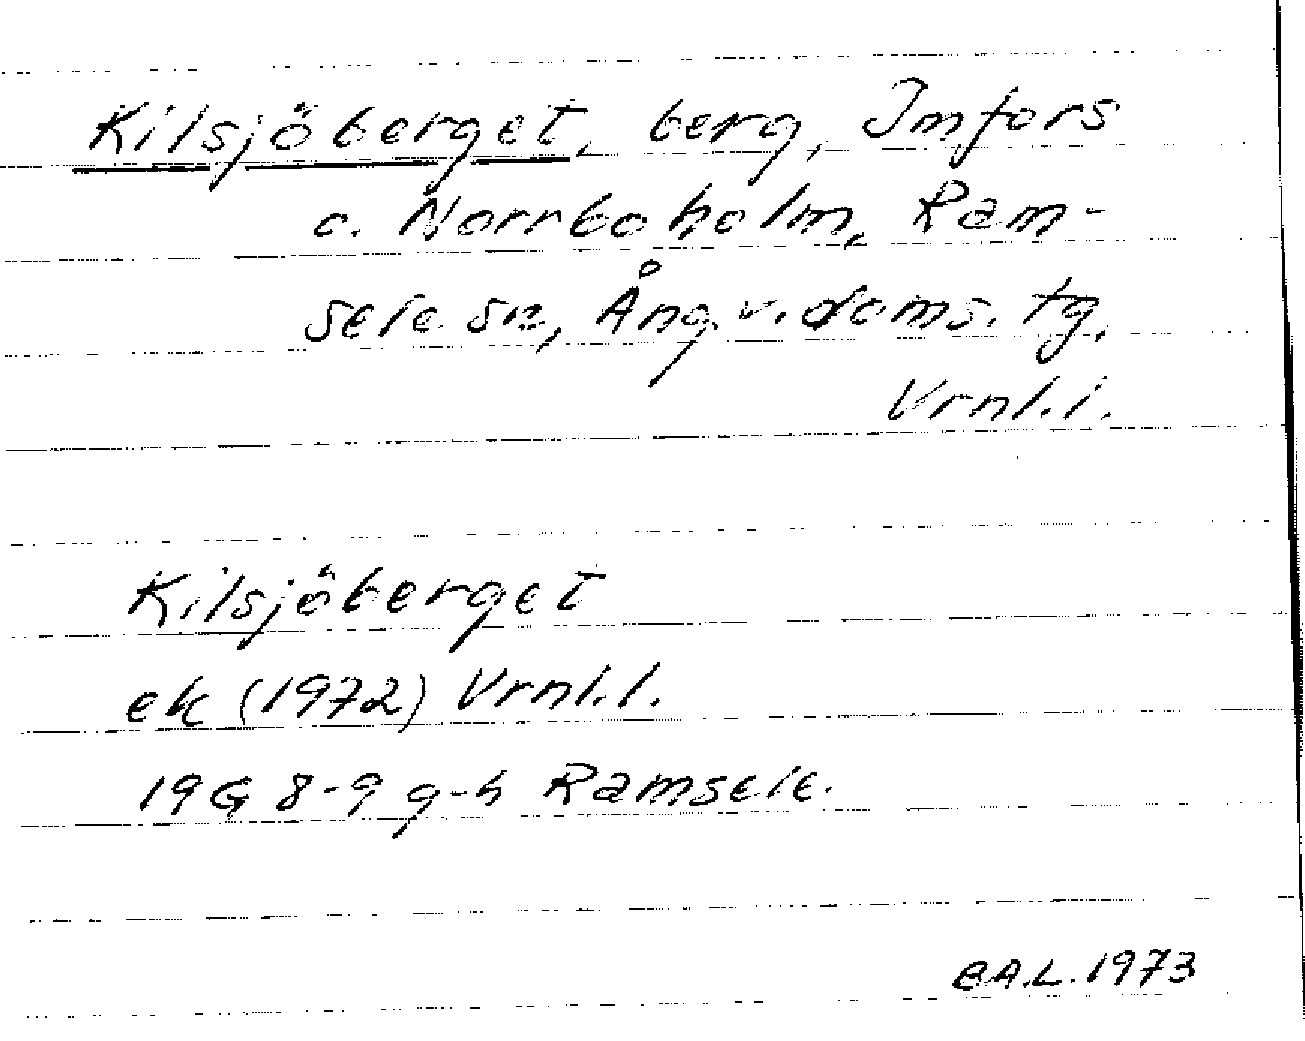 Kilsjöberget, berg, Imfors
o. Norrboholm, Ram-
sele sn, Ång. v. doms. tg,
Vrnl. l.
Kilsjöberget
ek (1972) Vrnl. l.
19G 8-9 g-h Ramsele.
B.A.L. 1973